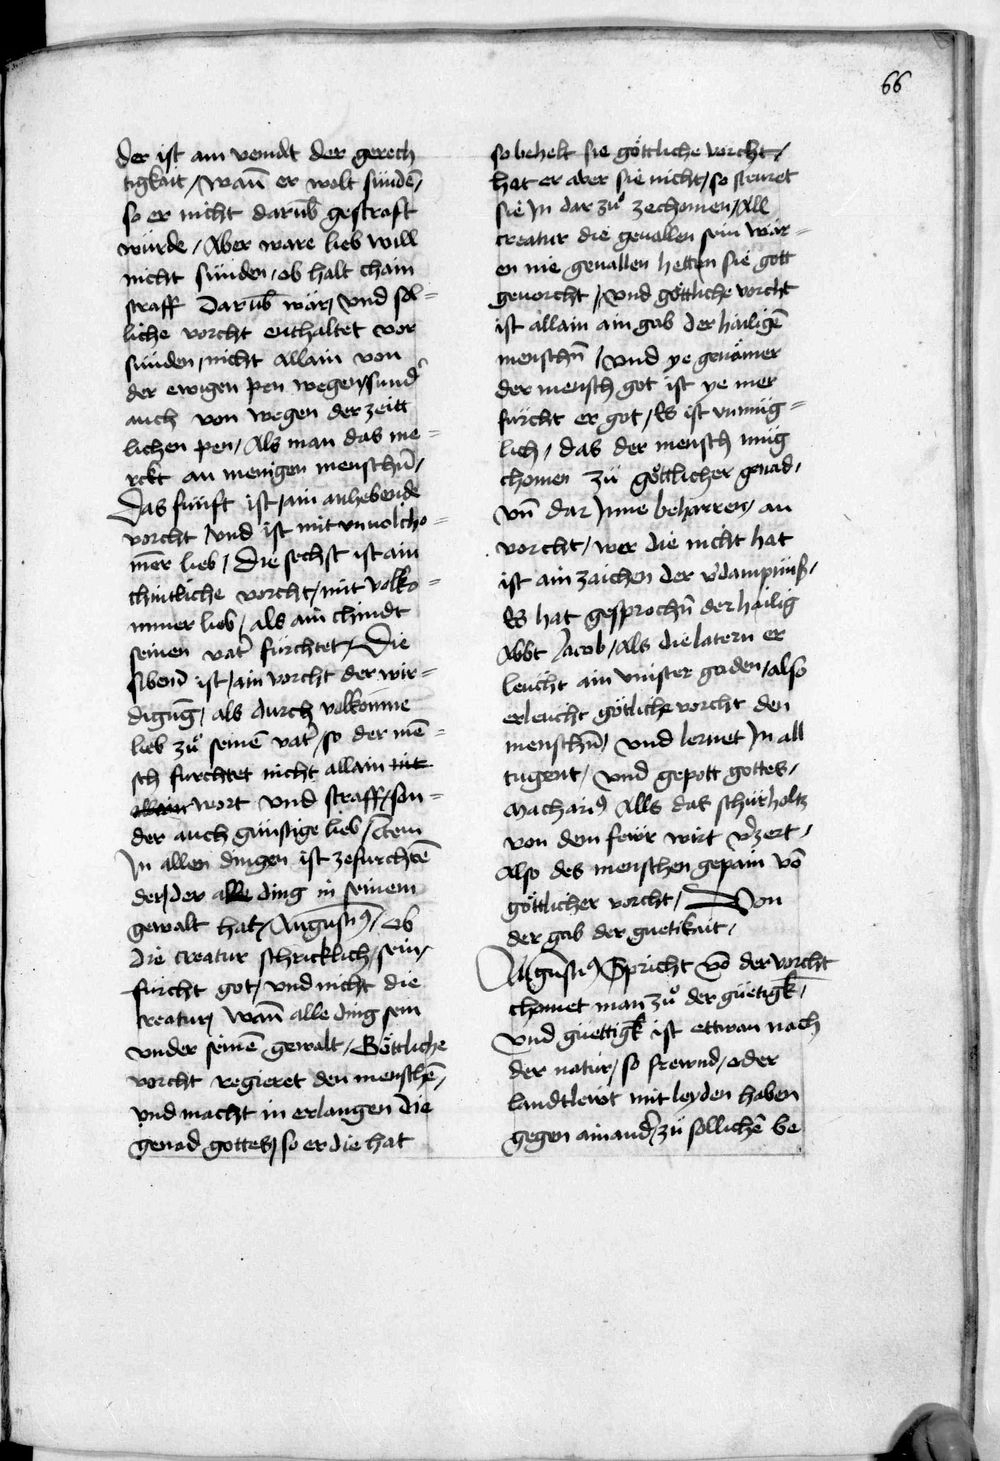 66
der ist ain veindt der gerech
tigkait / wan̄ er wolt sünden /
so er nicht darūb gestraft
würde / Aber ware lieb will
nicht sünden / ob halt chain
straff darūb wär / vnd sol=
liche vorcht enthaltet vor
sünden / nicht allain von
der ewigen pen wegen / sund̄
auch von wegen der zeitt
lichen pen / Als man das me=
rckt an menigen menschn̄ /
Das fünft ist / ain anhebende
vorcht / vnd ist mit vnuolcho=
mēr lieb / Die sechst ist ain
chintliche vorcht / mit volko=
mmer lieb / als ain chindt
seinen vat̄ fürchtet / Die
sibend̄ ist / ain vorcht der wir=
digūg / als durch volkomne
lieb zů seinē vat̄ / so der mē=
sch furchtet nicht allain mit
allain wort vnd straff / son=
der auch günstige lieb / Item
In allen dingen ist zefurchtē
der / der alle ding in seinem
gewalt hat / Augustin9 / Ob
die creatur schricklich / sein /
fürcht got / vnd nicht die
creatur / wan̄ alle ding sein
vnder seinē gewalt / Göttliche
vorcht regieret den menschē /
vnd macht in erlangen die
genad gottes / so er die hat
so behelt sie göttliche vorcht /
hat er aber sie nicht / so steuret
sie In dar zů zechomen / All
creatur die geuallen sein wär=
en nie geuallen hetten sie gott
geuorcht / vnd göttliche vorcht
ist allain ain gab der hailigē
menschn̄ / vnd ye genämer
der mensch got ist ye mer
fürcht er got / Es ist vnmüg=
lich / das der mensch müg
chomen zü göttlicher genad /
vn̄ dar Inne beharren / an
vorcht / wer die nicht hat
ist ain zaichen der v̄dampnüß /
Es hat gesprochn̄ der hailig
Abbt Jacob / Als die latern er
leücht ain vinster gaden / also
erleucht götliche vorcht den
menschn̄ / vnd lernet In all
tugent / vnd gepott gottes /
Machari9 Alls das schürholtz
von dem fewr wirt v̄zert /
Also des menschen gepain vō
göttlicher vorcht / Von
der gab der guetikait /
Augustin9 Spricht vō der vorcht
chomet man zů der güetigk̄ /
vnd güettigk̄ ist ettwan nach
der natur / so frewnd / oder
landtlewt mit leyden haben
gegen ainand̄ / zü sollichē be